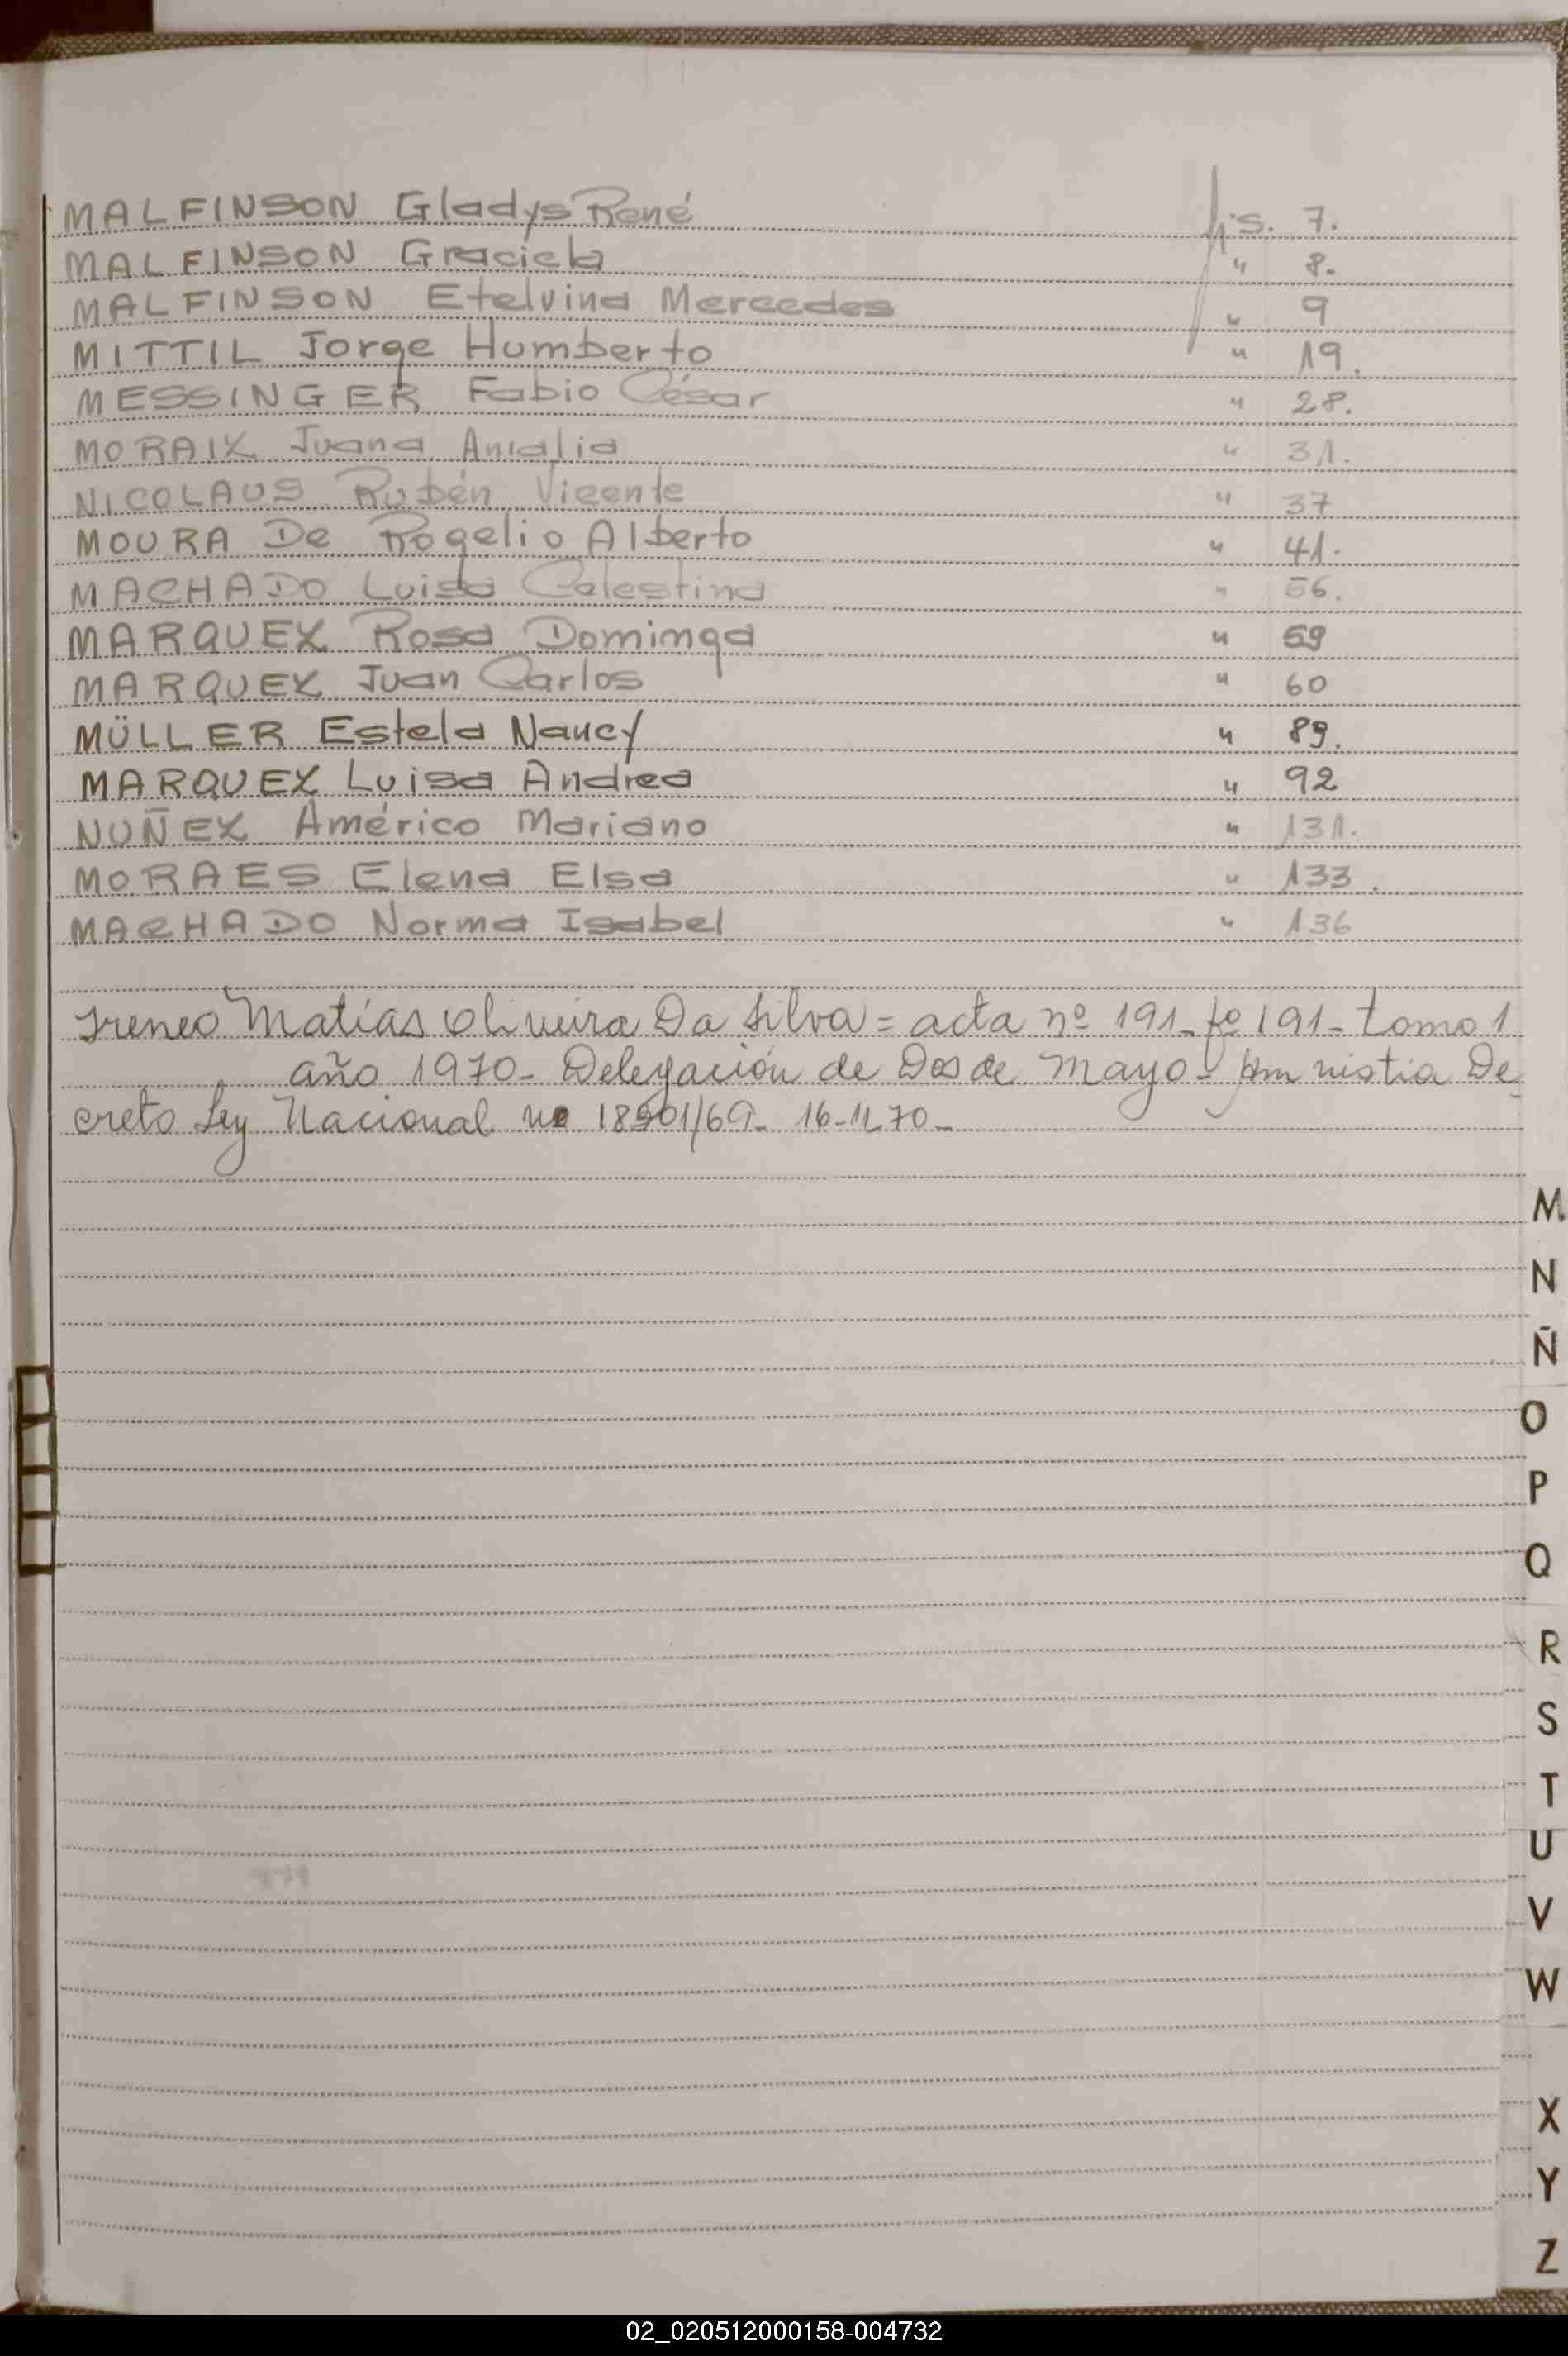 MALFINSON Gladys René fjs. 7.
MALFINSON Graciela " 8.
MALFINSON Etelvina Mercedes " 9
MITTIL Jorge Humberto " 19.
MESSINGER Fabio César " 28.
MORAIZ Juana Amalia " 31.
NICOLAUS Rubén Vicente " 37
MOURA De Rogelio Alberto " 41.
MACHADO Luisa Celestina " 56.
MARQUEZ Rosa Dominga " 59
MARQUEZ Juan Carlos " 60
MÜLLER Estela Nancy " 89.
MARQUEZ Luisa Andrea " 92
NUÑEZ Américo Mariano " 131.
MORAES Elena Elsa " 133.
MACHADO Norma Isabel " 136
Ireneo Matías Oliveira Da Silva = acta nº 191 - fº 191 - tomo 1
año 1970 - Delegación de Dos de Mayo - Amnistia De-
creto Ley Nacional nº 18901/69. 16-11-70-
M
N
Ñ
O
P
Q
R
S
T
U
V
W
X
Y
Z
02_020512000158-004732